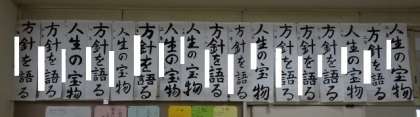 人生の宝物
方針を語る
人生の宝物
方針を語る
方針を語る
方針を語る
人生の宝物
方針を語る
方針を語る
人生の宝物
人生の宝物
方針を語る
人生の宝物
方針を語る
人生の宝物
方針を語る
方針を語る